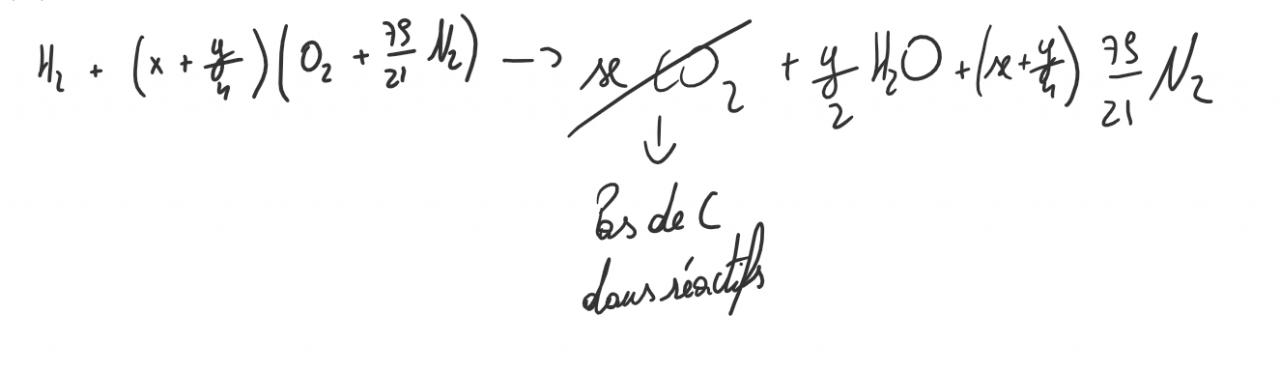 H₂ + (x + y/4)(O₂ + 79/21 N₂) → x CO₂ + y/2 H₂O + (x + y/4) 79/21 N₂
↓
Pas de C
dans réactifs